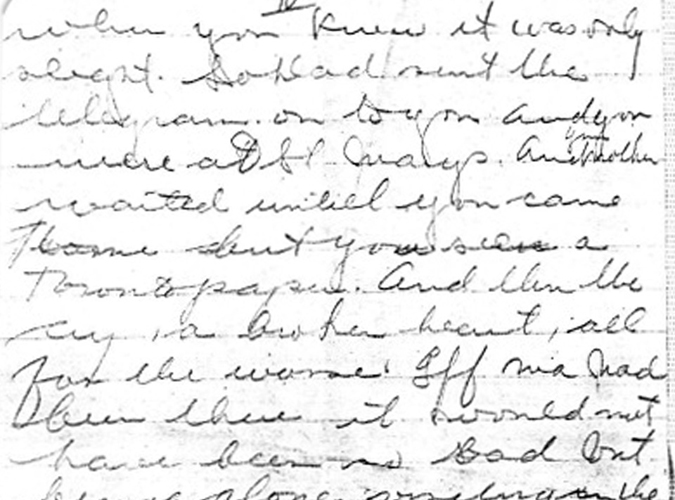 IV
when you knew it was only
slight. So Dad sent the
telegram on to you and you
were at St Marys. And your Mother
waited until you came
Home but you seen a
Toronto paper. And then the
cry, a broken heart, all
for the worse. Iff ma had
been there it would not
have been so bad but
being alone the